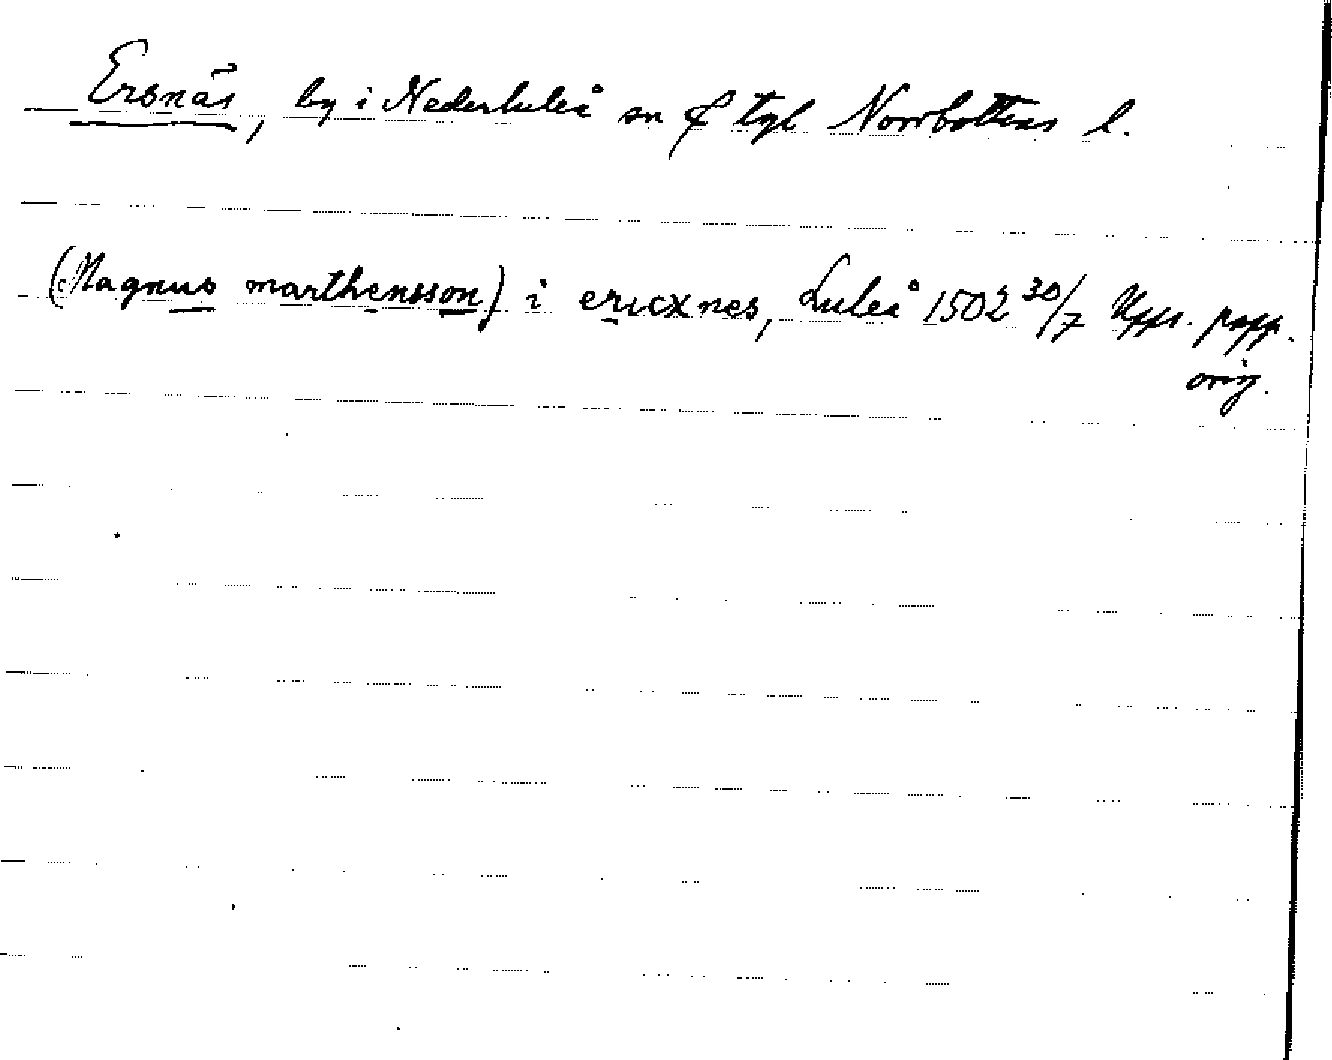 Ersnäs, by i Nederluleå sn & tgl Norrbottens l.
(Magnus marthensson) i ericxnes, Luleå 1502 30/7 Upps. papp.
orig.